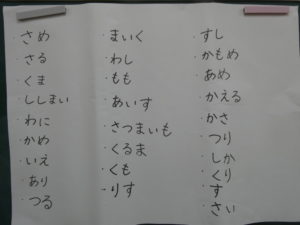 ・さめ
・さる
・くま
・ししまい
・わに
・かめ
・いえ
・あり
・つる
・まいく
・わし
・もも
・あいす
・さつまいも
・くるま
・くも
・りす
・すし
・かもめ
・あめ
・かえる
・かさ
・つり
・しか
・くり
・す
・さい